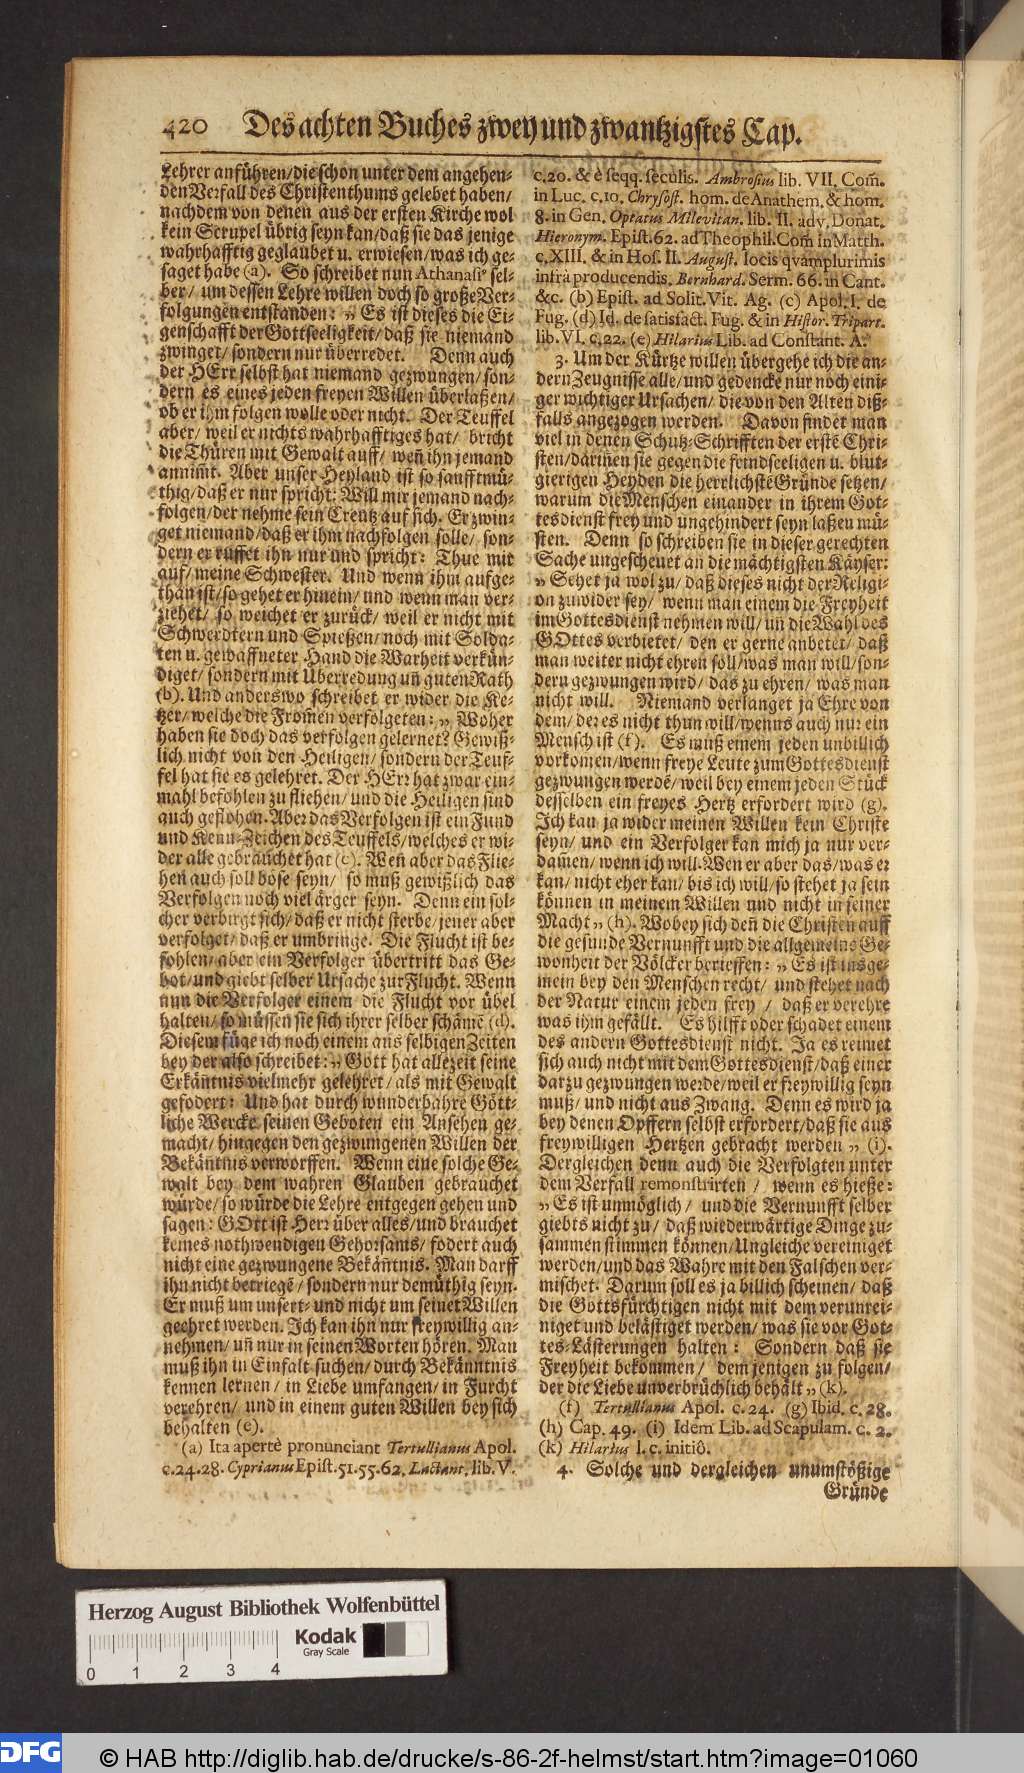 420 Des achten Buches zwey und zwantzigstes Cap.
Lehrer anführen/die schon unter dem angehen-
den Verfall des Christenthums gelebet haben/
nachdem von denen aus der ersten Kirche wol
kein Scrupel übrig seyn kan/daß sie das jenige
wahrhafftig geglaubet u. erwiesen/was ich ge-
saget habe (a). So schreibet nun Athanasi⁹ sel-
ber/ um dessen Lehre willen doch so große Ver-
folgungen entstanden: „ Es ist dieses die Ei-
genschafft der Gottseeligkeit/ daß sie niemand
zwinget/ sondern nur überredet. Denn auch
der HErr selbst hat niemand gezwungen/ son-
dern es eines jeden freyen Willen überlaßen/
ob er ihm folgen wolle oder nicht. Der Teuffel
aber/ weil er nichts wahrhafftiges hat/ bricht
die Thüren mit Gewalt auff/ weñ ihn jemand
annim̃t. Aber unser Heyland ist so sanfftmü-
thig/daß er nur spricht: Will mir jemand nach-
folgen/der nehme sein Creutz auf sich. Er zwin-
get niemand/daß er ihm nachfolgen solle/ son-
dern er ruffet ihn nur und spricht: Thue mir
auf/ meine Schwester. Und wenn ihm aufge-
than ist/so gehet er hinein/ und wenn man ver-
ziehet/ so weichet er zurück/ weil er nicht mit
Schwerdtern und Spießen/ noch mit Solda-
ten u. gewaffneter Hand die Warheit verkün-
diget/ sondern mit Uberredung uñ guten Rath
(b). Und anderswo schreibet er wider die Ke-
tzer/welche die From̃en verfolgeten: „ Woher
haben sie doch das verfolgen gelernet? Gewiß-
lich nicht von den Heiligen/ sondern der Teuf-
fel hat sie es gelehret. Der HErr hat zwar ein-
mahl befohlen zu fliehen/ und die Heiligen sind
auch geflohen. Aber das Verfolgen ist ein Fund
und Kenn-Zeichen des Teuffels/welches er wi-
der alle gebrauchet hat (c). Weñ aber das Flie-
hen auch soll böse seyn/ so muß gewißlich das
Verfolgen noch viel ärger seyn. Denn ein sol-
cher verbirgt sich/ daß er nicht sterbe/jener aber
verfolget/ daß er umbringe. Die Flucht ist be-
fohlen/ aber ein Verfolger übertritt das Ge-
bot/und giebt selber Ursache zur Flucht. Wenn
nun die Verfolger einem die Flucht vor übel
halten/ so müssen sie sich ihrer selber schämẽ (d).
Diesem füge ich noch einem aus selbigen Zeiten
bey der also schreibet: „ Gott hat allezeit seine
Erkäñtnis vielmehr gelehret/ als mit Gewalt
gefodert: Und hat durch wunderbahre Gött-
liche Wercke seinen Geboten ein Ansehen ge-
macht/ hingegen den gezwungenen Willen der
Bekäñtnis verworffen. Wenn eine solche Ge-
walt bey dem wahren Glauben gebrauchet
würde/ so würde die Lehre entgegen gehen und
sagen: GOtt ist Herr über alles/und brauchet
keines nothwendigen Gehorsams/ fodert auch
nicht eine gezwungene Bekäñtnis. Man darff
ihn nicht betriegẽ/ sondern nur demüthig seyn.
Er muß um unsert- und nicht um seinet Willen
geehret werden. Ich kan ihn nur freywillig an-
nehmen/ uñ nur in seinen Worten hören. Man
muß ihn in Einfalt suchen/ durch Bekänntnis
kennen lernen/ in Liebe umfangen/ in Furcht
verehren/ und in einem guten Willen bey sich
behalten (e).
(a) Ita apertè pronunciant Tertullianus Apol.
c.24.28. Cyprianus Epist. 51.55.62. Lactant. lib. V.
c.20. & è seqq. seculis. Ambrosius lib. VII. Com̃.
in Luc. c.10. Chrysost. hom. de Anathem. & hom.
8. in Gen. Optatus Milevitan. lib. II. adv. Donat.
Hieronym. Epist. 62. ad Theophil. Com̃ in Matth.
c. XIII. & in Hos. II. August. locis qvamplurimis
infrà producendis. Bernhard. Serm. 66. in Cant.
&c. (b) Epist. ad Solit. Vit. Ag. (c) Apol. I. de
Fug. (d) Id. de satisfact. Fug. & in Histor. Tripart.
lib. VI. c.22. (e) Hilarius Lib. ad Constant. A.
3. Um der Kürtze willen übergehe ich die an-
dern Zeugnisse alle/ und gedencke nur noch eini-
ger wichtiger Ursachen/ die von den Alten diß-
falls angezogen werden. Davon findet man
viel in denen Schutz-Schrifften der erstẽ Chri-
sten/ darin̄en sie gegen die feindseeligen u. blut-
gierigen Heyden die herrlichstẽ Gründe setzen/
warum die Menschen einander in ihrem Got-
tesdienst frey und ungehindert seyn laßen mü-
sten. Denn so schreiben sie in dieser gerechten
Sache ungescheuet an die mächtigsten Käyser:
„ Sehet ja wol zu/ daß dieses nicht der Religi-
on zuwider sey/ wenn man einem die Freyheit
im Gottesdienst nehmen will/ uñ die Wahl des
GOttes verbietet/ den er gerne anbetet/ daß
man weiter nicht ehren soll/was man will/son-
dern gezwungen wird/ das zu ehren/ was man
nicht will. Niemand verlanget ja Ehre von
dem/ der es nicht thun will/wenns auch nur ein
Mensch ist (f). Es muß einem jeden unbillich
vorkomen/wenn freye Leute zum Gottesdienst
gezwungen werdẽ/ weil bey einem jeden Stück
desselben ein freyes Hertz erfordert wird (g).
Ich kan ja wider meinen Willen kein Christe
seyn/ und ein Verfolger kan mich ja nur ver-
dam̃en/ wenn ich will. Wen er aber das/was er
kan/ nicht eher kan/ bis ich will/ so stehet ja sein
können in meinem Willen und nicht in seiner
Macht „ (h). Wobey sich deñ die Christen auff
die gesunde Vernunfft und die allgemeine Ge-
wonheit der Völcker berieffen: „ Es ist insge-
mein bey den Menschen recht/ und stehet nach
der Natur einem jeden frey / daß er verehre
was ihm gefällt. Es hilfft oder schadet einem
des andern Gottesdienst nicht. Ja es reimet
sich auch nicht mit dem Gottesdienst/daß einer
darzu gezwungen werde/weil er freywillig seyn
muß/ und nicht aus Zwang. Denn es wird ja
bey denen Opffern selbst erfordert/daß sie aus
freywilligen Hertzen gebracht werden „ (i).
Dergleichen denn auch die Verfolgten unter
dem Verfall remonstrirten / wenn es hieße:
„ Es ist unmöglich/ und die Vernunfft selber
giebts nicht zu/ daß wiederwärtige Dinge zu-
sammen stimmen können/Ungleiche vereiniget
werden/und das Wahre mit den Falschen ver-
mischet. Darum soll es ja billich scheinen/ daß
die Gottsfürchtigen nicht mit dem verunrei-
niget und belästiget werden/ was sie vor Got-
tes-Lästerungen halten: Sondern daß sie
Freyheit bekommen/ dem jenigen zu folgen/
der die Liebe unverbrüchlich behält „ (k).
(f) Tertullianus Apol. c. 24. (g) Ibid. c. 28.
(h) Cap. 49. (i) Idem Lib. ad Scapulam. c. 2.
(k) Hilarius l. c. initiô.
4. Solche und dergleichen unumstößige
Gründe
Herzog August Bibliothek Wolfenbüttel
Kodak
Gray Scale
0 1 2 3 4
DFG © HAB http://diglib.hab.de/drucke/s-86-2f-helmst/start.htm?image=01060